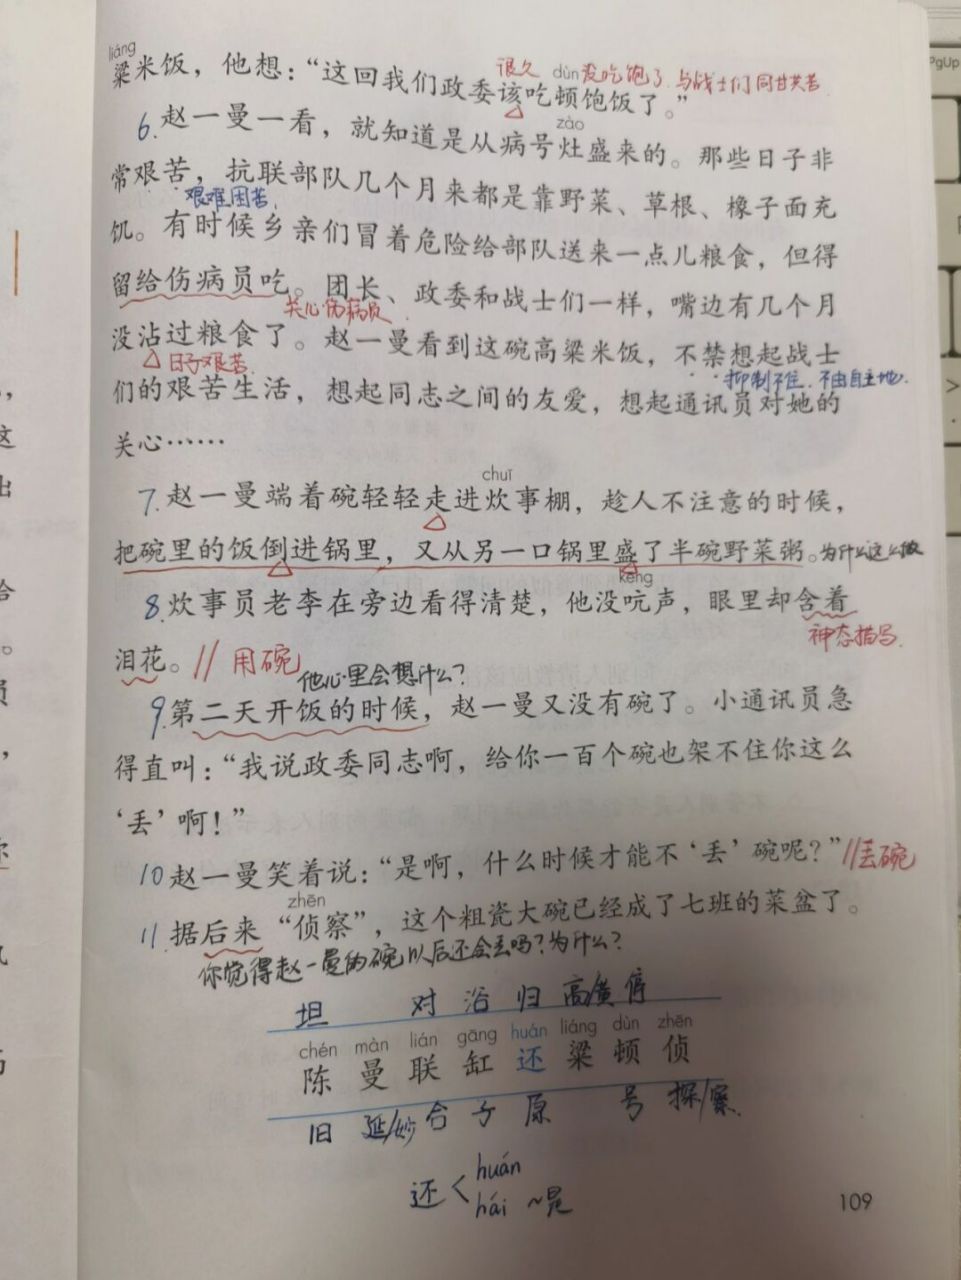 liáng
粱米饭，他想：“这回我们政委该吃顿饱饭了。”
很久 dùn 没吃饱了 与战士们同甘共苦
zào
6. 赵一曼一看，就知道是从病号灶盛来的。那些日子非
常艰苦，抗联部队几个月来都是靠野菜、草根、橡子面充
艰难困苦
饥。有时候乡亲们冒着危险给部队送来一点儿粮食，但得
留给伤病员吃。团长、政委和战士们一样，嘴边有几个月
关心伤病员
没沾过粮食了。赵一曼看到这碗高粱米饭，不禁想起战士
日子艰苦
抑制不住．不由自主地．
们的艰苦生活，想起同志之间的友爱，想起通讯员对她的
关心……
chuī
7. 赵一曼端着碗轻轻走进炊事棚，趁人不注意的时候，
把碗里的饭倒进锅里，又从另一口锅里盛了半碗野菜粥。为什么这么做
kēng
8. 炊事员老李在旁边看得清楚，他没吭声，眼里却含着
神态描写
泪花。// 用碗
他心里会想什么？
9. 第二天开饭的时候，赵一曼又没有碗了。小通讯员急
得直叫：“我说政委同志啊，给你一百个碗也架不住你这么
‘丢’啊！”
10 赵一曼笑着说：“是啊，什么时候才能不‘丢’碗呢？” //丢碗
zhēn
11. 据后来“侦察”，这个粗瓷大碗已经成了七班的菜盆了。
你觉得赵一曼的碗以后还会丢吗？为什么？
坦 对 浴 归 高/黄 停
chén màn lián gāng huán liáng dùn zhēn
陈 曼 联 缸 还 粱 顿 侦
旧 延/妙 合 子 原 号 探/察
还 < huán
hái ~是
109